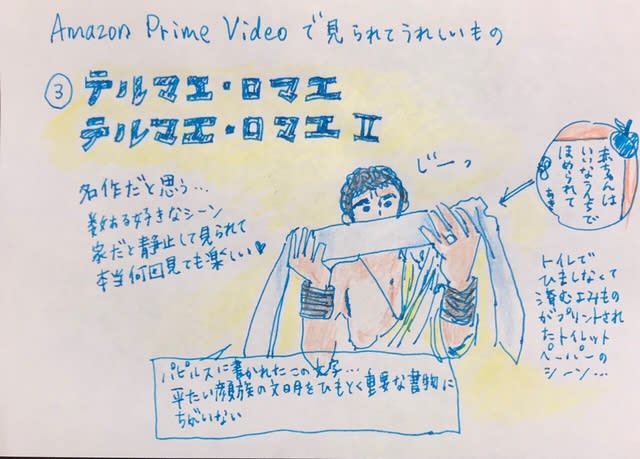 Amazon Prime Videoで見られてうれしいもの
③ テルマエ・ロマエ
テルマエ・ロマエ Ⅱ
名作だと思う…
数ある好きなシーン
家だと静止して見られて
本当何回見ても楽しい♥
じーっ
赤さんは
いいなうんちで
ほめられて
トイレで
ひましなくて
済むよみもの
がプリントされ
たトイレット
ペーパーの
シーン…
パピルスに書かれたこの文字…
平たい顔族の文明をひもとく重要な書物に
ちがいない